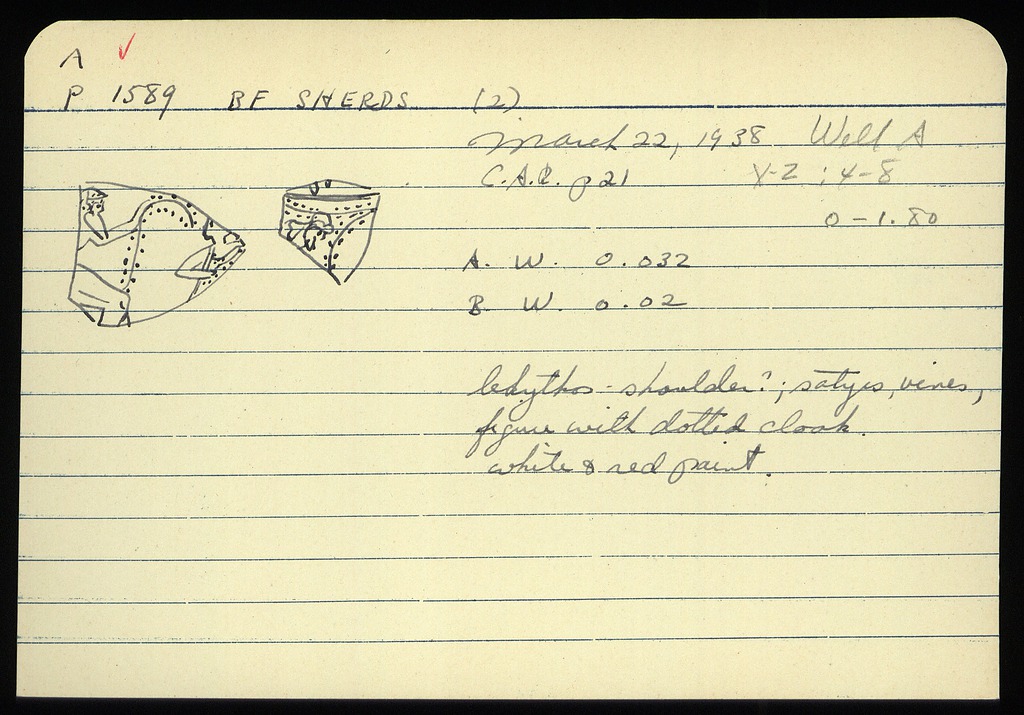 A ✓
P 1589 BF SHERDS (2)
March 22, 1938 Well A
C.A.R. p 21 X-Z : 4-8
0-1.80
A. W. 0.032
B. W. 0.02
lekythos - shoulder?; satyrs, vines,
figure with dotted cloak.
white & red paint.